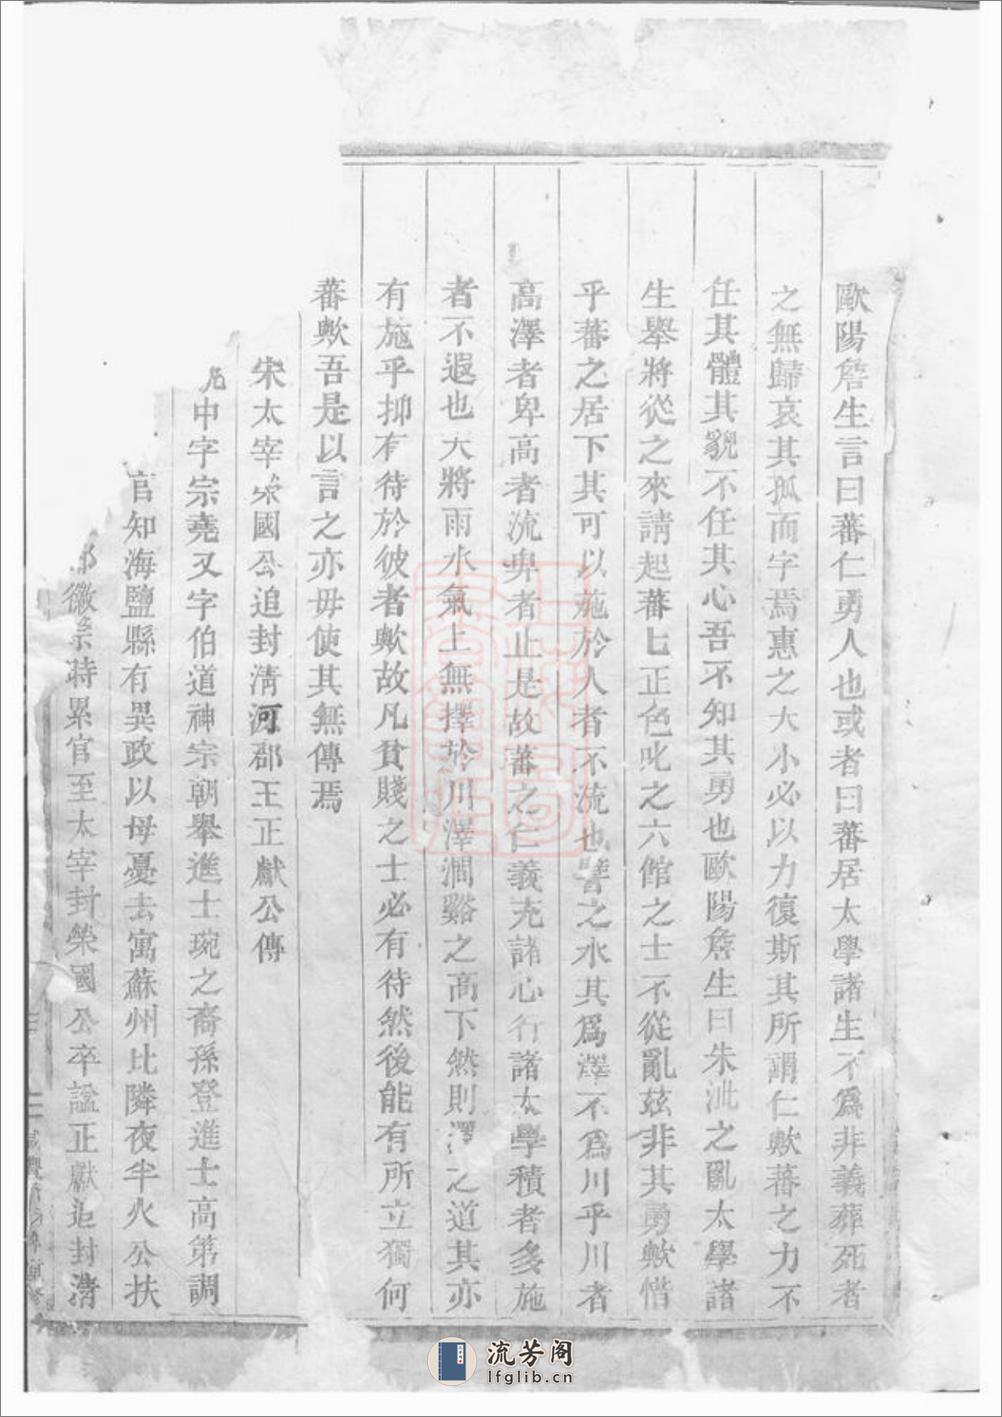 歐陽詹生言曰蕃仁勇人也或者曰蕃居太學諸生不爲非義葬死者
之無歸哀其孤而字焉惠之大小必以力復斯其所謂仁歟蕃之力不
任其體其貌不任其心吾不知其勇也歐陽詹生曰朱泚之亂太學諸
生舉將從之來請起蕃蕃正色叱之六館之士不從亂玆非其勇歟惜
乎蕃之居下其可以施於人者不流也譬之水其爲澤不爲川乎川者
高澤者卑高者流卑者止是故蕃之仁義充諸心行諸太學積者多施
者不遐也天將雨水氣上無擇於川澤澗谿之高下然則澤之道其亦
有施乎抑有待於彼者歟故凡貧賤之士必有待然後能有所立獨何
蕃歟吾是以言之亦毋使其無傳焉
宋太宰宋國公追封淸河郡王正獻公傳
中字宗堯又字伯道神宗朝舉進士琬之裔孫登進士高第調
官知海鹽縣有異政以母憂去寓蘇州比隣夜半火公扶
徽宗時累官至太宰封榮國公卒謚正獻追封淸
流芳阁
lfglib.cn